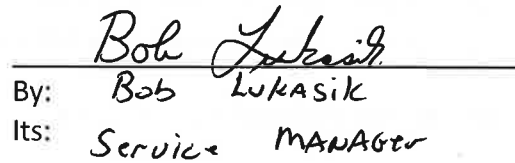 Bob Lukasik
By: Bob LUKASIK
Its: Service MANAGER